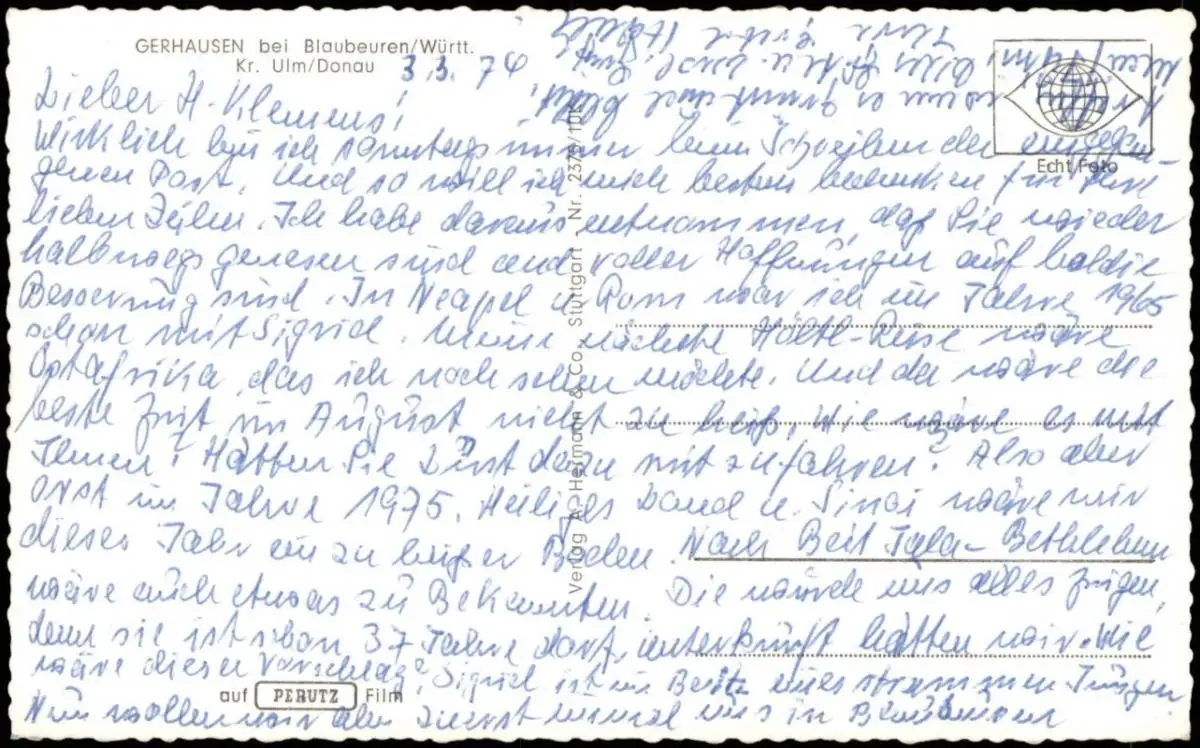 GERHAUSEN bei Blaubeuren/Württ.
Kr. Ulm/Donau
3.3.74
Lieber H. Klemens!
Wirklich bin ich sonntags immer beim Schreiben der eingegan-
genen Post. Und so will ich mich bestens bedanken für Ihre
lieben Zeilen. Ich habe daraus entnommen, daß Sie wieder
halbwegs genesen sind und voller Hoffnungen auf baldie
Besserung sind. In Neapel u. Rom war ich im Jahre 1965
schon mit Sigrid. Meine nächste Höltl-Reise wäre
Ostafrika, das ich noch sehen möchte. Und da wäre die
beste Zeit im August nicht zu heiß. Wie wäre es mit
Ihnen? Hätten Sie Lust dazu mitzufahren? Also aber
erst im Jahre 1975. Heiliges Land u. Sinai wäre mir
dieses Jahr ein zu heißer Boden. Nach Beit Jala - Bethlehem
wäre auch etwas zu Bekannten. Die würde uns alles zeigen,
denn sie ist schon 37 Jahre dort, Unterkunft hätten wir. Wie
wäre dieser Vorschlag? Sigrid ist im Besitz eines strammen Jungen
Nun wollen wir aber zuerst einmal uns in Blaubeuren
Ihre
Echt Foto
Verlag A. Hermann & Co., Stuttgart Nr. 2375/10
auf PERUTZ Film